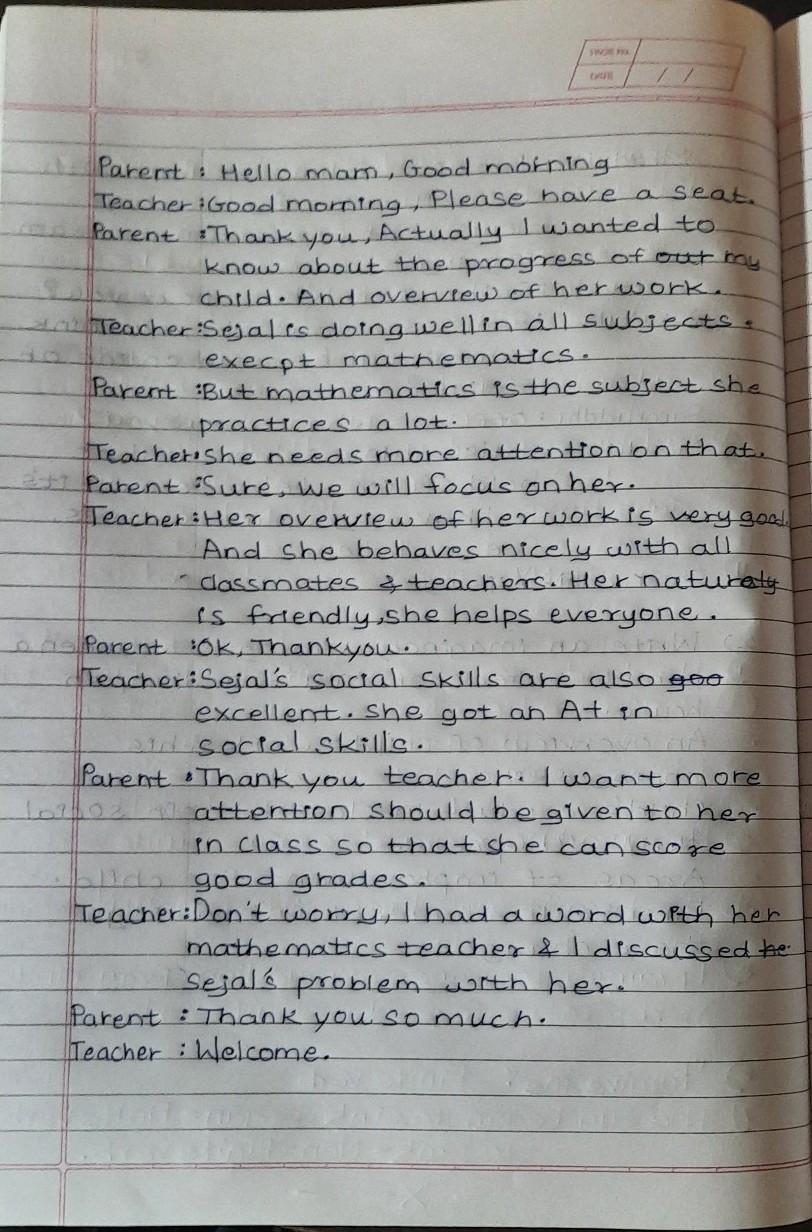 PAGE NO.
DATE / /
Parent : Hello mam, Good morning
Teacher : Good morning, Please have a seat.
Parent : Thank you, Actually I wanted to
know about the progress of out my
child. And overview of her work.
Teacher : Sejal is doing well in all subjects.
execpt mathematics.
Parent : But mathematics is the subject she
practices a lot.
Teacher : She needs more attention on that.
Parent : Sure, we will focus on her.
Teacher : Her overview of her work is very good.
And she behaves nicely with all
classmates & teachers. Her nature
is friendly, she helps everyone.
Parent : Ok, Thankyou.
Teacher : Sejal's social skills are also goo
excellent. She got an A+ in
social skills.
Parent : Thank you teacher. I want more
attention should be given to her
in class so that she can score
good grades.
Teacher : Don't worry, I had a word with her
mathematics teacher & I discussed he
Sejal's problem with her.
Parent : Thank you so much.
Teacher : Welcome.